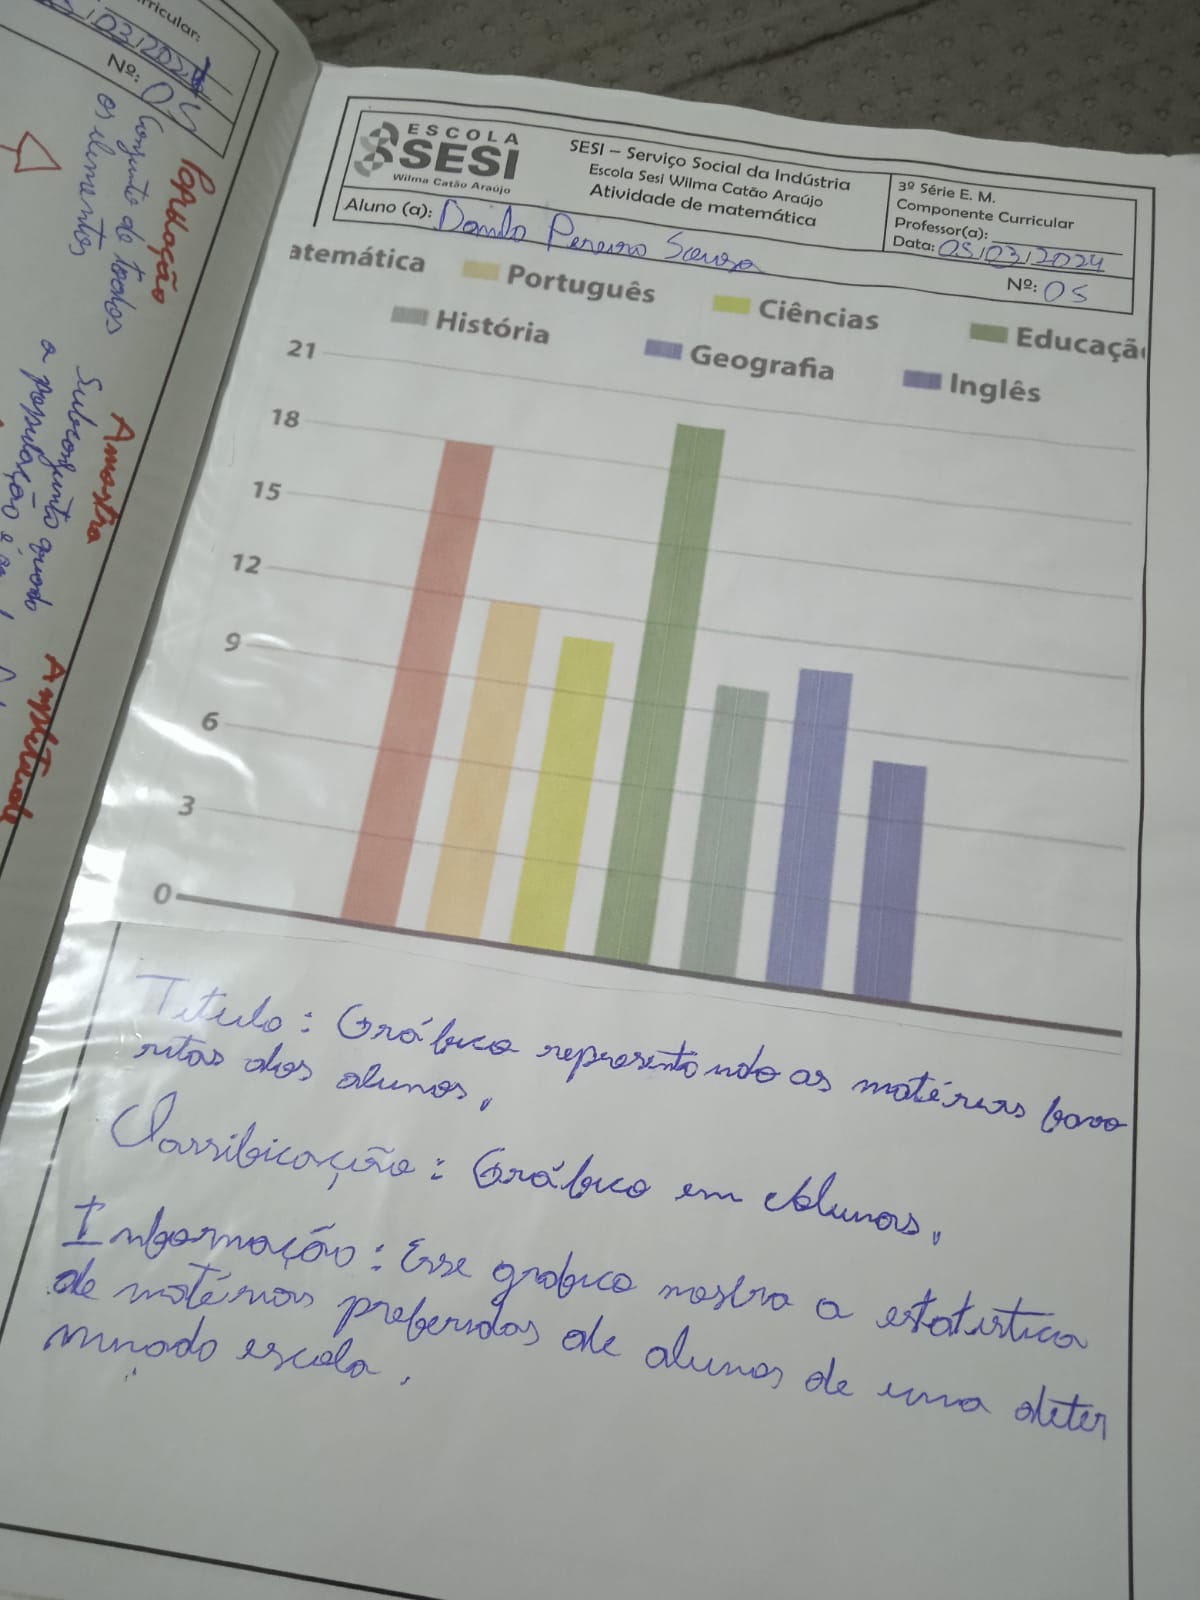 rricular:
03/2024
Nº: 05
População
Conjunto de todos
os elementos
Amostra
Subconjunto quado
a população é
Amplitude
ESCOLA
SESI
Wilma Catão Araújo
SESI – Serviço Social da Indústria
Escola Sesi Wilma Catão Araújo
Atividade de matemática
3º Série E. M.
Componente Curricular
Professor(a):
Data: 05/03/2024
Aluno (a): Danilo Pereira Souza
Nº: 05
atemática Português Ciências Educaçã
História Geografia Inglês
21
18
15
12
9
6
3
0
Titulo: Gráfico representando as matérias favo
ritas dos alunos.
Classificação: Gráfico em colunas.
Informação: Esse grafico mostra a estatistica
de matérias preferidas de alunos de uma deter
minado escola.